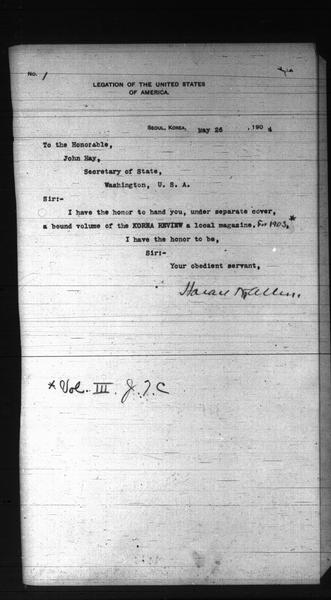 No. 1
LEGATION OF THE UNITED STATES
OF AMERICA.
SEOUL, KOREA, May 26 , 1904
To the Honorable,
John Hay,
Secretary of State,
Washington, U. S. A.
Sir:-
I have the honor to hand you, under separate cover,
a bound volume of the KOREA REVIEW a local magazine, for 1903.*
I have the honor to be,
Sir:-
Your obedient servant,
Horace N. Allen.
* Vol. III. J. T. C